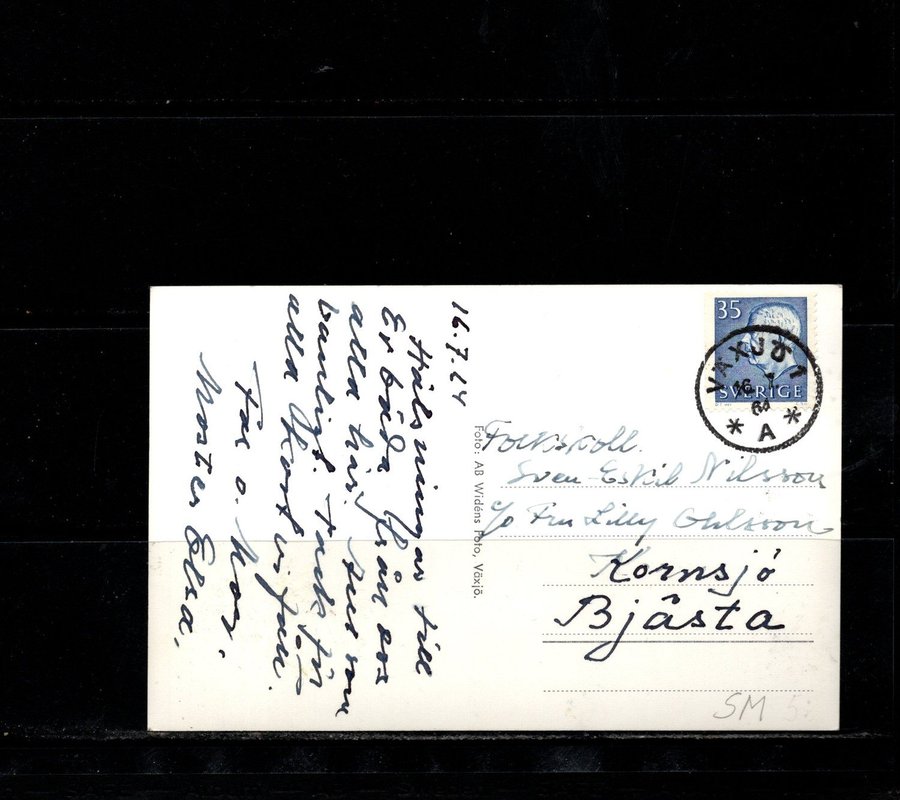 16.7.64
Hälsningar till
Er båda från oss
alla här. Sed van
vanligt. Tack för
alla kort vi fått.
Far o. Mor.
Moster Elsa.
Foto: AB Widéns Foto, Växjö.
35
SVERIGE
VÄXJÖ 1
16 7
64
* A *
Folkskoll.
Sven-Eskil Nilsson
c/o Fru Lilly Ohlsson
Kornsjö
Bjästa
SM